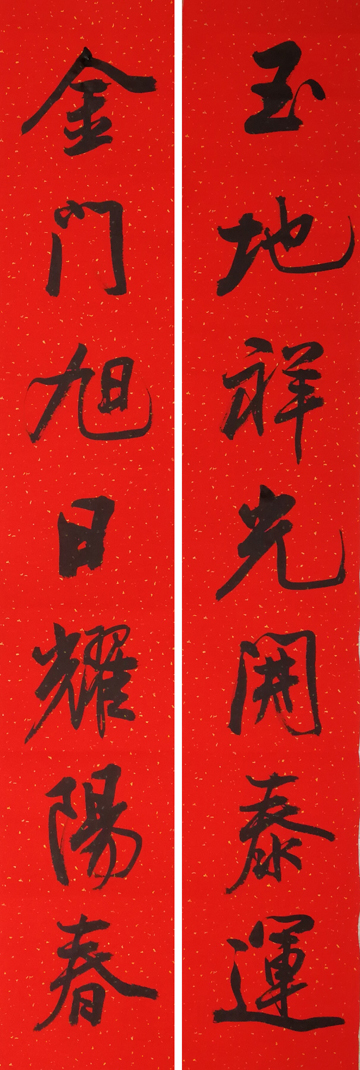 玉地祥光開泰運
金门旭日耀陽春